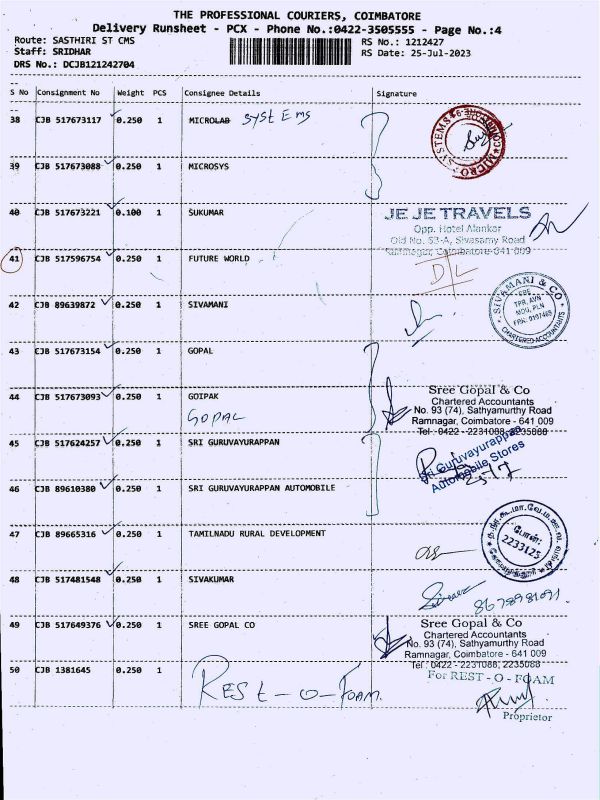 THE PROFESSIONAL COURIERS, COIMBATORE
Delivery Runsheet - PCX - Phone No.:0422-3505555 - Page No.:4
Route: SASTHIRI ST CMS RS No.: 1212427
Staff: SRIDHAR RS Date: 25-Jul-2023
DRS No.: DCJB121242704
S No Consignment No Weight PCS Consignee Details Signature
38 CJB 517673117 0.250 1 MICROLAB SYSTEMS
39 CJB 517673088 0.250 1 MICROSYS
40 CJB 517673221 0.100 1 SUKUMAR
JE JE TRAVELS
Opp. Hotel Alankar
Old No. 53-A, Sivasamy Road
Ramnagar, Coimbatore-641 009
41 CJB 517596754 0.250 1 FUTURE WORLD
D/L
42 CJB 89639872 0.250 1 SIVAMANI
SIVAMANI & CO
CHARTERED ACCOUNTANTS
43 CJB 517673154 0.250 1 GOPAL
44 CJB 517673093 0.250 1 GOIPAK
GOPAL
Sree Gopal & Co
Chartered Accountants
No. 93 (74), Sathyamurthy Road
Ramnagar, Coimbatore - 641 009
Tel : 0422 - 2231088, 2235088
45 CJB 517624257 0.250 1 SRI GURUVAYURAPPAN
Sri Guruvayurappan
Automobile Stores
46 CJB 89610380 0.250 1 SRI GURUVAYURAPPAN AUTOMOBILE
47 CJB 89665316 0.250 1 TAMILNADU RURAL DEVELOPMENT
போன்:
2233125
48 CJB 517481548 0.250 1 SIVAKUMAR
49 CJB 517649376 0.250 1 SREE GOPAL CO
Sree Gopal & Co
Chartered Accountants
No. 93 (74), Sathyamurthy Road
Ramnagar, Coimbatore - 641 009
Tel : 0422 - 2231088, 2235088
50 CJB 1381645 0.250 1 REST-O-FOAM
For REST - O - FOAM
Proprietor